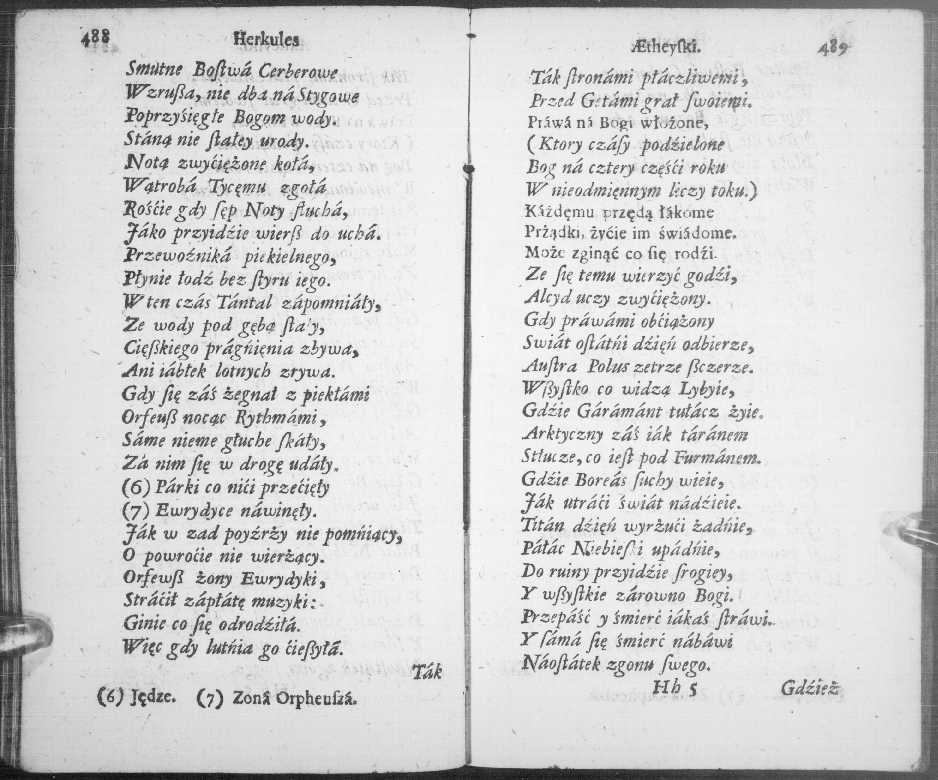 488 Herkules
Smutne Bostwá Cerberowe
Wzrußa, nie dba ná Stygowe
Poprzyśięgłe Bogom wody.
Stáną nie stałey urody.
Notą zwyćiężone kołá,
Wątrobá Tycęmu zgołá
Rośćie gdy sęp Noty słuchá,
Jáko przyidźie wierß do uchá.
Przewoźniká piekielnego,
Płynie łodź bez styru iego.
W ten czás Tántal zápomniáły,
Ze wody pod gębą stały,
Cięßkiego prágńięnia zbywa,
Ani iábłek lotnych zrywa.
Gdy się záś żegnał z piekłámi
Orfeuß nocąc Rythmámi,
Sáme nieme głuche skáły,
Zá nim się w drogę udáły.
(6) Párki co nići przećięły
(7) Ewrydyce náwinęły.
Ják w zad poyźrży nie pomńiący,
O powroćie nie wierżący.
Orfewß żony Ewrydyki,
Stráćił zápłátę muzyki:
Ginie co się odrodźiłá.
Więc gdy lutńia go ćießyłá.
Ták
(6) Jędze. (7) Zoná Orpheuszá.
Ætheyski. 489
Ták stronámi płáczliwemi,
Przed Getámi grał swoiemi.
Práwá ná Bogi włożone,
(Ktory czásy podźielone
Bog ná cztery częśći roku
W nieodmięnnym leczy toku.)
Káżdęmu przędą łákome
Prżądki, żyćie im świádome.
Może zginąć co się rodźi.
Ze się temu wierzyć godźi,
Alcyd uczy zwyćiężony.
Gdy práwámi obćiążony
Swiát ostátńi dźięń odbierze,
Austra Polus zetrze ßczerze.
Wßystko co widzą Lybyie,
Gdźie Gárámánt tułácz żyie.
Arktyczny záś iák táránem
Stłucze, co iest pod Furmánem.
Gdźie Boreás suchy wieie,
Ják utráći świát nádźieie.
Titán dźięń wyrżući żadńie,
Páłác Niebieski upádńie,
Do ruiny przyidźie srogiey,
Y wßystkie zárowno Bogi.
Przepáść y śmierć iákaś stráwi.
Y sámá się śmierć nábáwi
Náostátek zgonu swego.
Hh 5 Gdźież